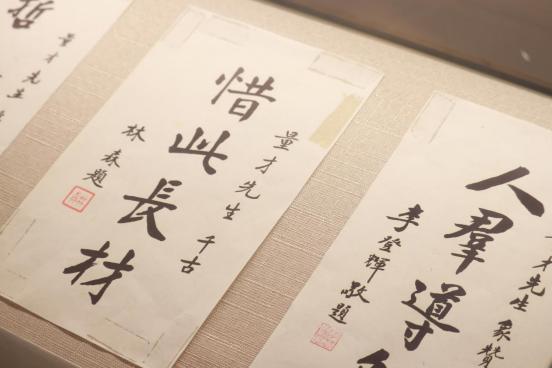 才先生象贊
人羣導
李登輝敬題
量才先生千古
惜此長材
林森題
哲
量才先生